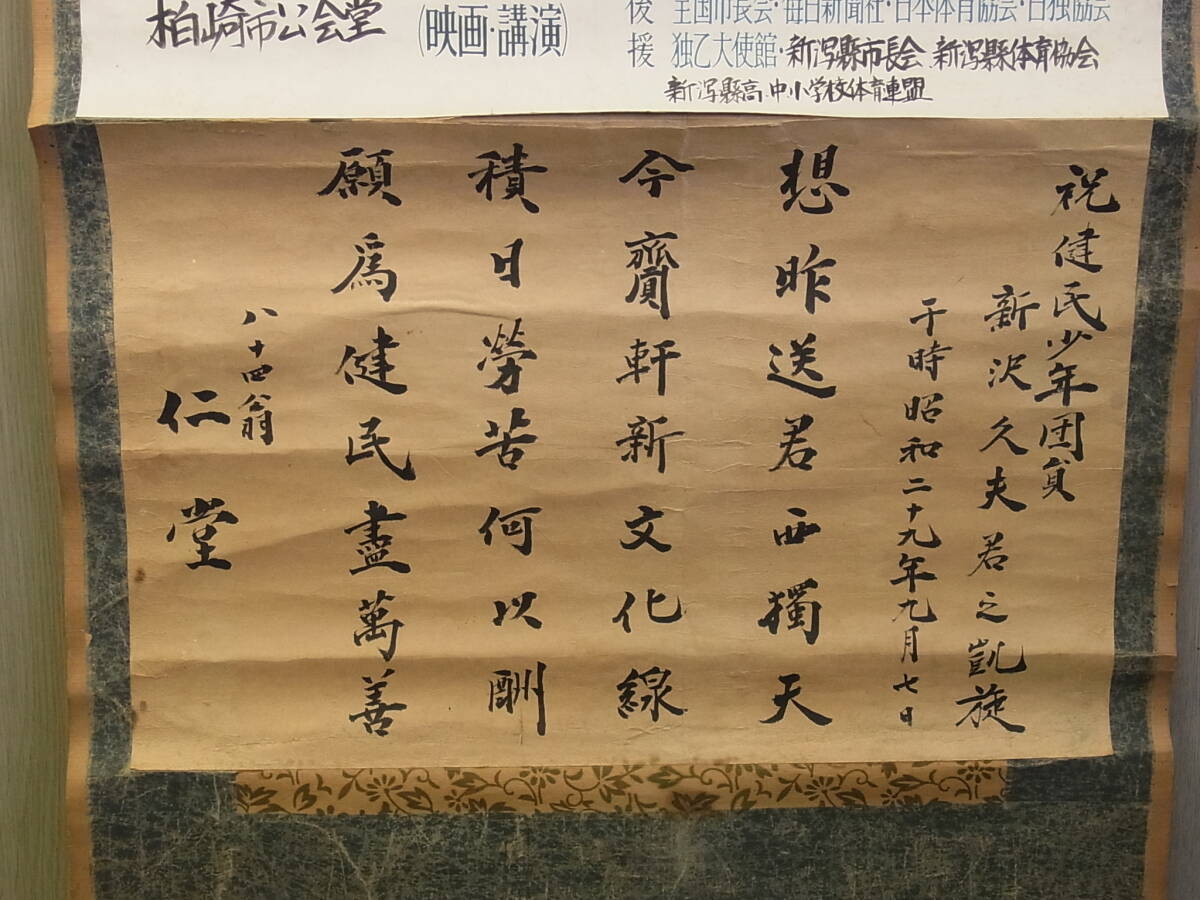 柏崎市公会堂
(映画・講演)
後援
全国市長会・毎日新聞社・日本体育協会・日独協会
独乙大使館・新潟縣市長会、新潟縣体育協会
新潟縣高、中小学校体育連盟
祝健民少年団員
新沢久夫君之凱旋
于時昭和二十九年九月七日
想昨送君西獨天
今齎軒新文化線
積日勞苦何以酬
願爲健民盡萬善
八十四翁
仁堂